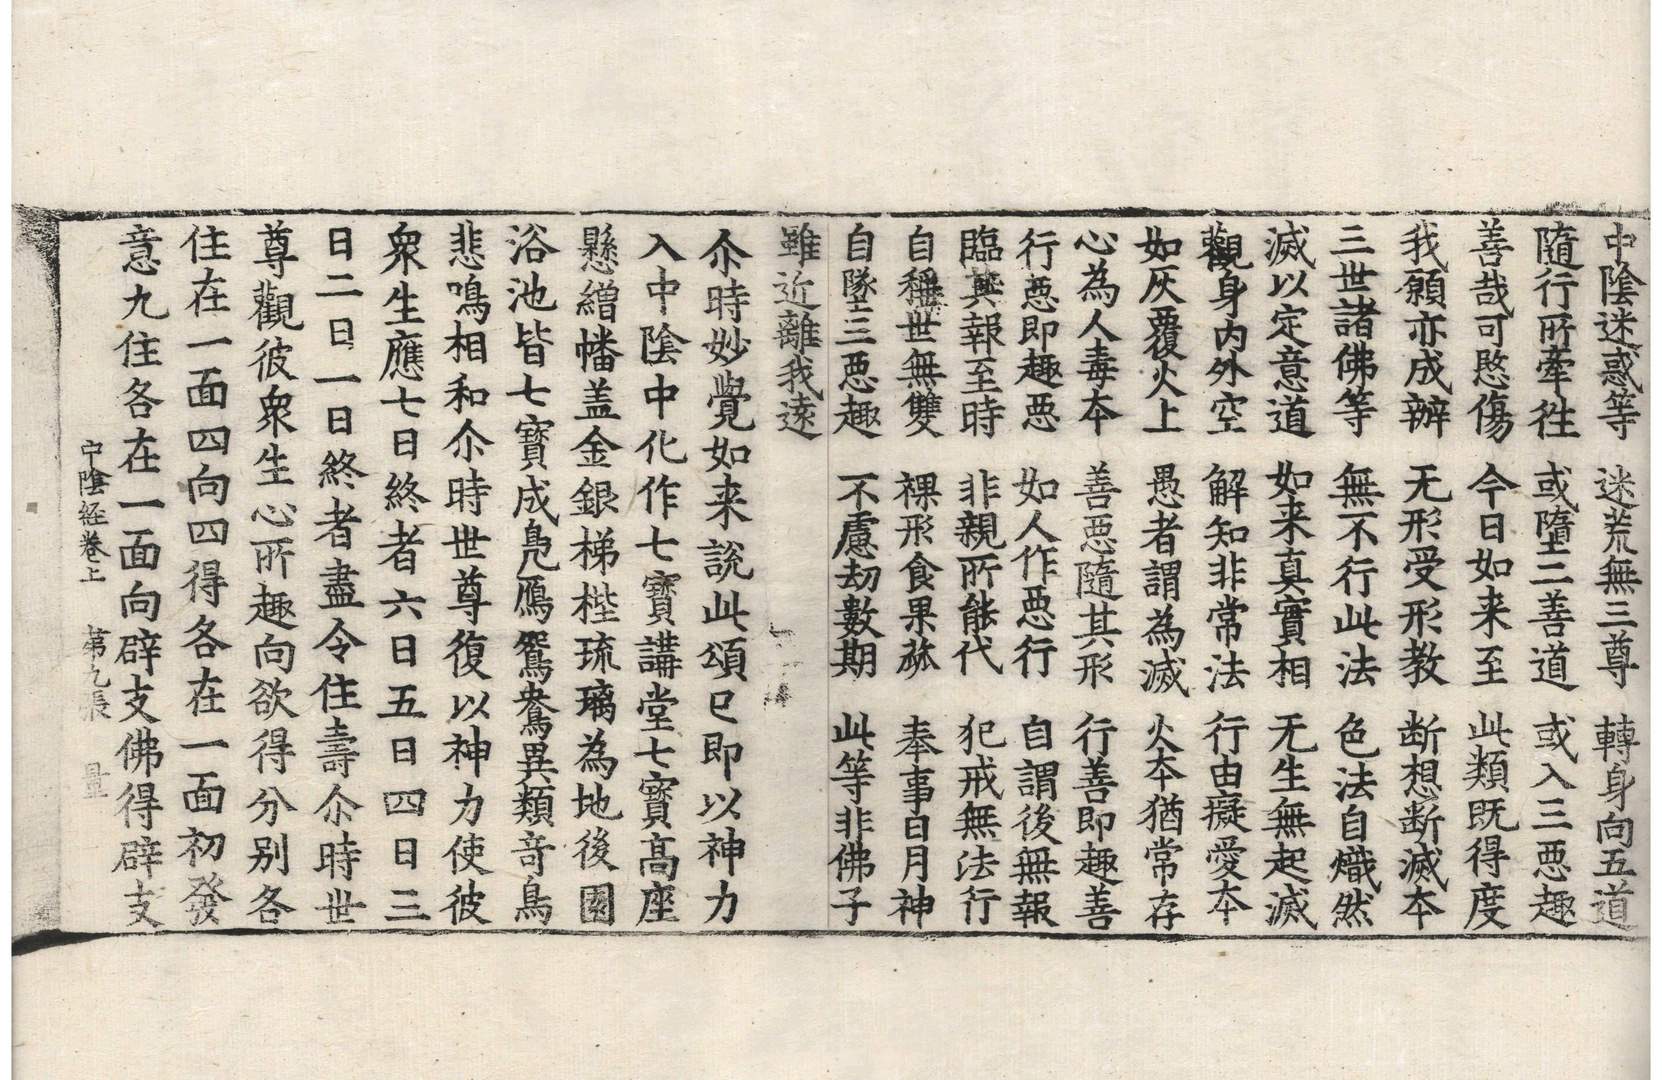 中陰迷惑等　迷荒無三尊　轉身向五道
隨行所牽往　或墮二善道　或入三惡趣
善哉可愍傷　今日如来至　此類既得度
我願亦成辦　无形受形教　断想断滅本
三世諸佛等　無不行此法　色法自熾然
滅以定意道　如来真實相　无生無起滅
觀身内外空　解知非常法　行由癡愛本
如灰覆火上　愚者謂為滅　火本猶常存
心為人毒本　善惡隨其形　行善即趣善
行惡即趣惡　如人作惡行　自謂後無報
臨其報至時　非親所能代　犯戒無法行
自稱世無雙　裸形食果蓏　奉事日月神
自墜三惡趣　不慮劫數期　此等非佛子
雖近離我遠
尒時妙覺如来說此頌已即以神力
入中陰中化作七寳講堂七寳高座
懸繒幡盖金銀梯桯琉璃為地後園
浴池皆七寳成鳧鴈鴛鴦異類竒鳥
悲鳴相和尒時世尊復以神力使彼
衆生應七日終者六日五日四日三
日二日一日終者盡令住壽尒時世
尊觀彼衆生心所趣向欲得分别各
住在一面四向四得各在一面初發
意九住各在一面向辟支佛得辟支
中陰経巻上　第九張　量